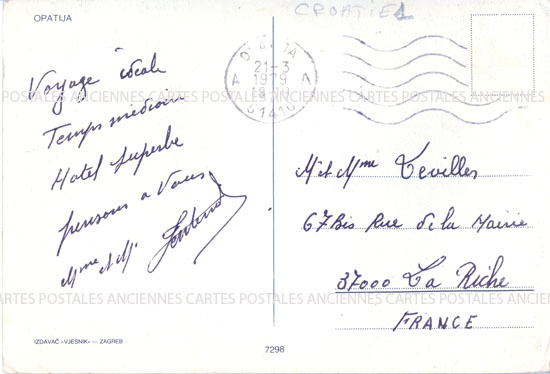 OPATIJA
CROATIE
21-3
1979
51410
Voyage idéale
Temps médiocre
Hotel superbe
pensons a Vous
Mme et M.
M et Mme
67 Bis Rue de la Mairie
37000 La Riche
FRANCE
POSTALES ANCIENNES CARTES POSTALES ANCIENNES CARTES POSTALES
CARTES POSTALES ANCIENNES CARTES POSTALES ANCIENNES CARTES
IZDAVAČ «VJESNIK» — ZAGREB
7298